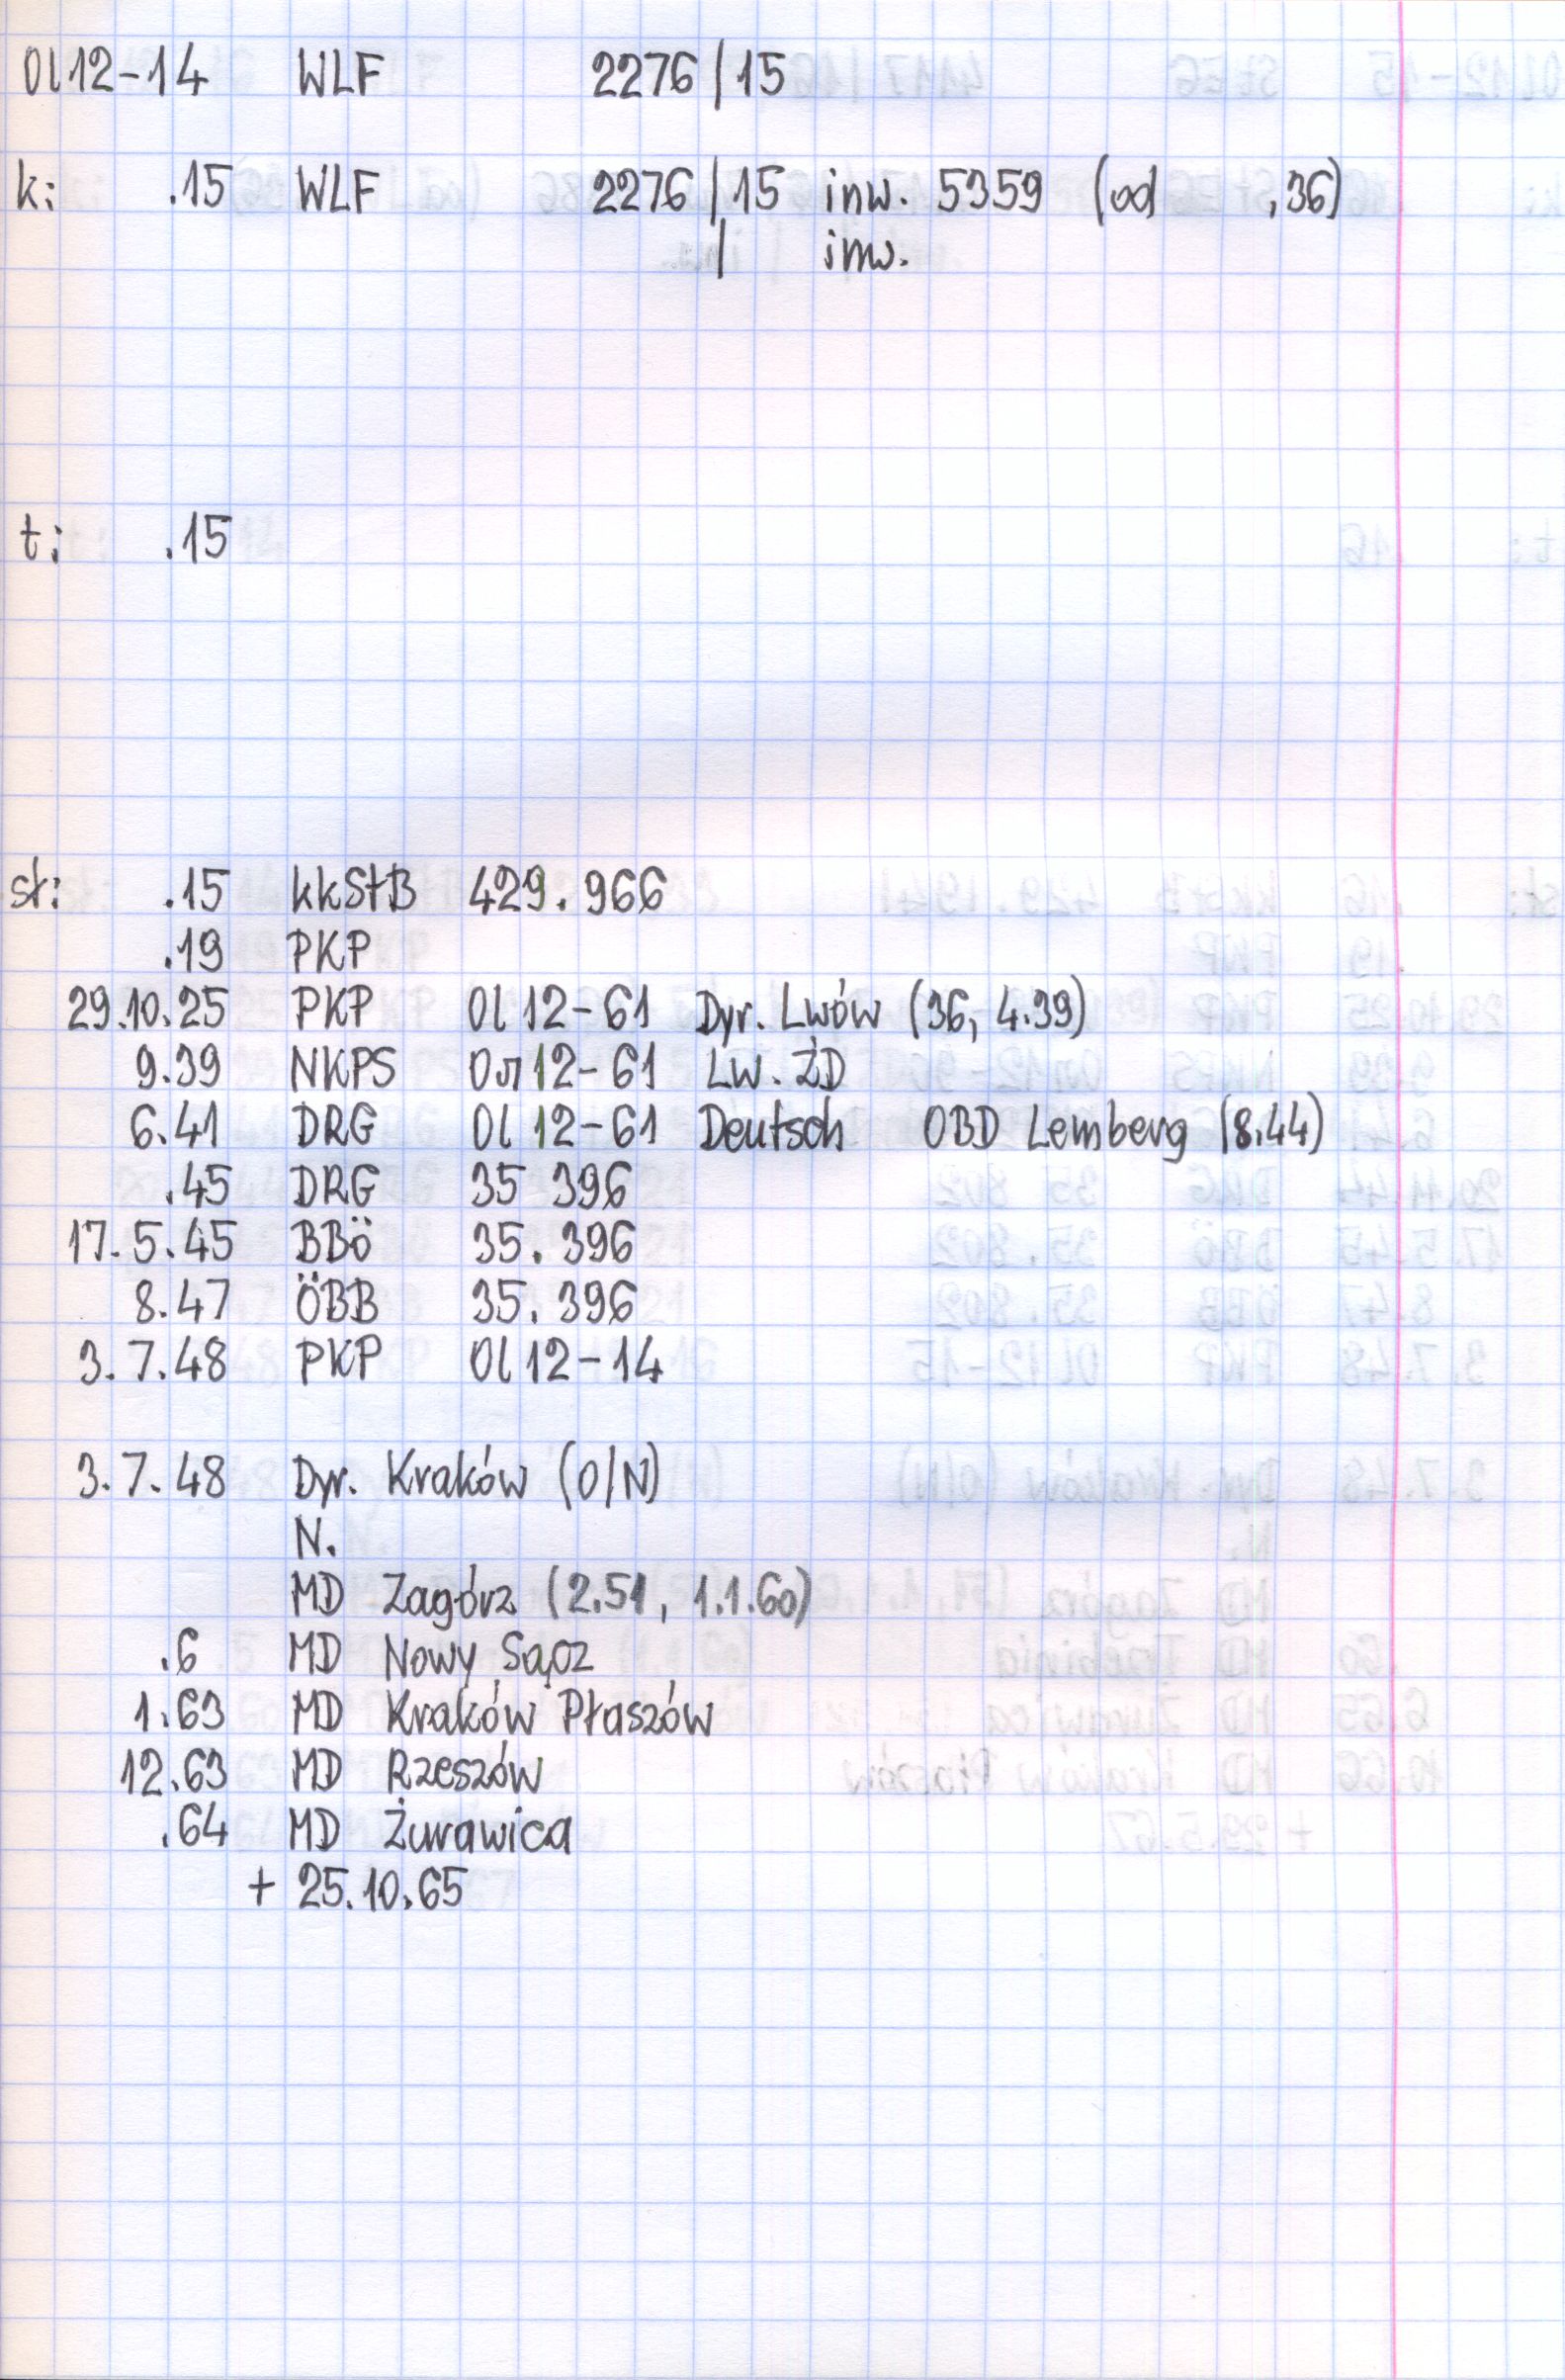 Ol12-14 WLF 2276/15
k: .15 WLF 2276/15 inw. 5359 (od .36)
/ inw.
t: .15
st: .15 kkStB 429.966
.19 PKP
29.10.25 PKP Ol12-61 Dyr. Lwów (36, 4.39)
9.39 NKPS Ол12-61 Lw. ŻD
6.41 DRG Ol12-61 Deutsch OBD Lemberg (8.44)
.45 DRG 35 396
17.5.45 BBö 35.396
8.47 ÖBB 35.396
3.7.48 PKP Ol12-14
3.7.48 Dyr. Kraków (O/N)
N.
MD Zagórz (2.51, 1.1.60)
.6 MD Nowy Sącz
1.63 MD Kraków Płaszów
12.63 MD Rzeszów
.64 MD Żurawica
+ 25.10.65